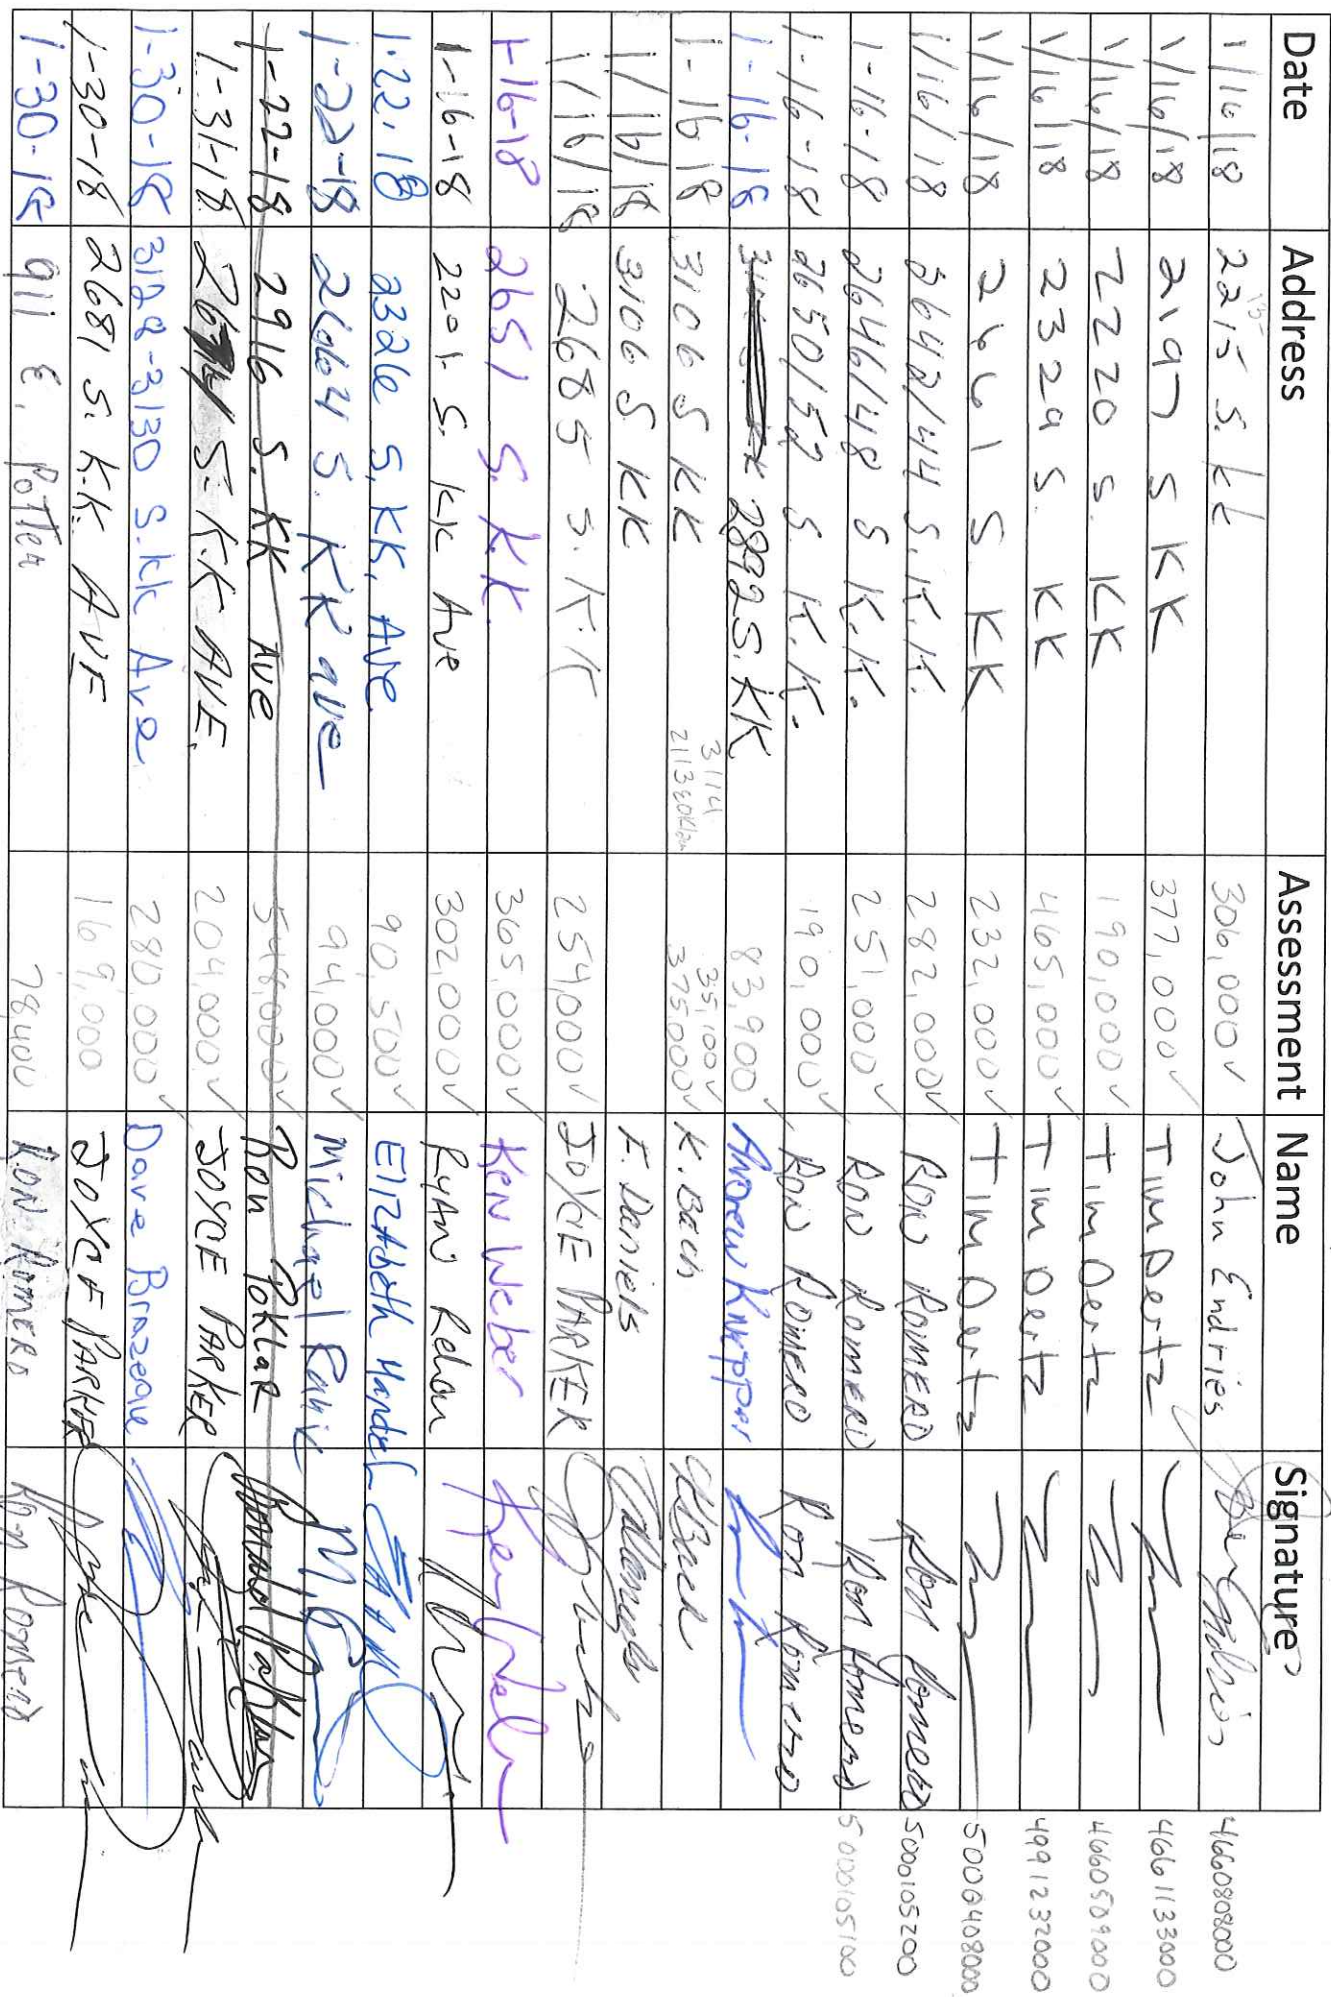 Date Address Assessment Name Signature
1/16/18 2215 S. KK 306,000 ✓ John Endries 4660808000
1/16/18 2197 S KK 377,000 ✓ Tim Oertz 4661133000
1/16/18 2220 S. KK 190,000 ✓ Tim Oertz 4660509000
1/16/18 2329 S KK 465,000 ✓ Tim Oertz 4991232000
1/16/18 2661 S KK 232,000 ✓ Tim Oertz 5000408000
1/16/18 2642/44 S. K.K. 282,000 ✓ RON ROMERO Ron Romero 5000105200
1-16-18 2646/48 S K.K. 251,000 ✓ RON ROMERO Ron Romero 5000105100
1-16-18 2650/52 S. K.K. 190,000 ✓ RON ROMERO Ron Romero
1-16-18 2892 S. KK 83,900 ✓ Andrew Knepper
3114 35,100 ✓
1-16-18 3106 S KK 375,000 ✓ K. Bach
1/16/18 3106 S KK F. Daniels
1/16/18 2685 S. K.K 254,000 ✓ JOYCE PARKER
1-16-18 2651 S. K.K. 365,000 ✓ Ken Weber Ken Weber
1-16-18 2201 S. KK Ave 302,000 ✓ RYAN
1-22-18 2326 S. KK. AVE 90,500 ✓ Elizabeth
1-22-18 2664 S. KK ave 94,000 ✓ Michael
1-22-18 2916 S. KK Ave 548,000 ✓ Ron Poklar
1-31-18 S. K.K AVE. 204,000 ✓ JOYCE PARKER
1-30-18 3128-3130 S. KK Ave 280,000 ✓ Dave Brazeau
1-30-18 2681 S. K.K. AVE 169,000 JOYCE PARKER
1-30-18 911 E. Potter 78,400 RON ROMERO Ron Romero